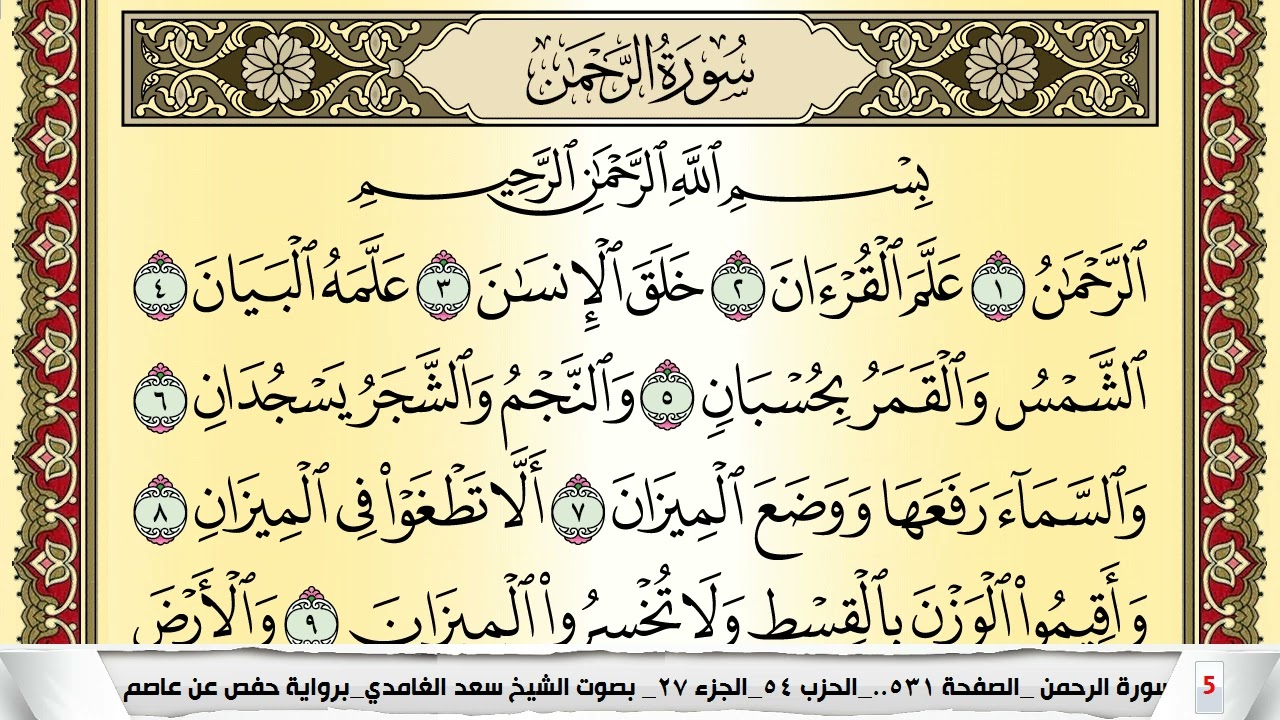 سُورَةُ الرَّحْمَٰن
بِسْمِ ٱللَّهِ ٱلرَّحْمَٰنِ ٱلرَّحِيمِ
ٱلرَّحْمَٰنُ ١ عَلَّمَ ٱلْقُرْءَانَ ٢ خَلَقَ ٱلْإِنسَٰنَ ٣ عَلَّمَهُ ٱلْبَيَانَ ٤
ٱلشَّمْسُ وَٱلْقَمَرُ بِحُسْبَانٍ ٥ وَٱلنَّجْمُ وَٱلشَّجَرُ يَسْجُدَانِ ٦
وَٱلسَّمَآءَ رَفَعَهَا وَوَضَعَ ٱلْمِيزَانَ ٧ أَلَّا تَطْغَوْا۟ فِى ٱلْمِيزَانِ ٨
وَأَقِيمُوا۟ ٱلْوَزْنَ بِٱلْقِسْطِ وَلَا تُخْسِرُوا۟ ٱلْمِيزَانَ ٩ وَٱلْأَرْضَ
سورة الرحمن _الصفحة ٥٣١.._الحزب ٥٤_الجزء ٢٧_ بصوت الشيخ سعد الغامدي_برواية حفص عن عاصم
5